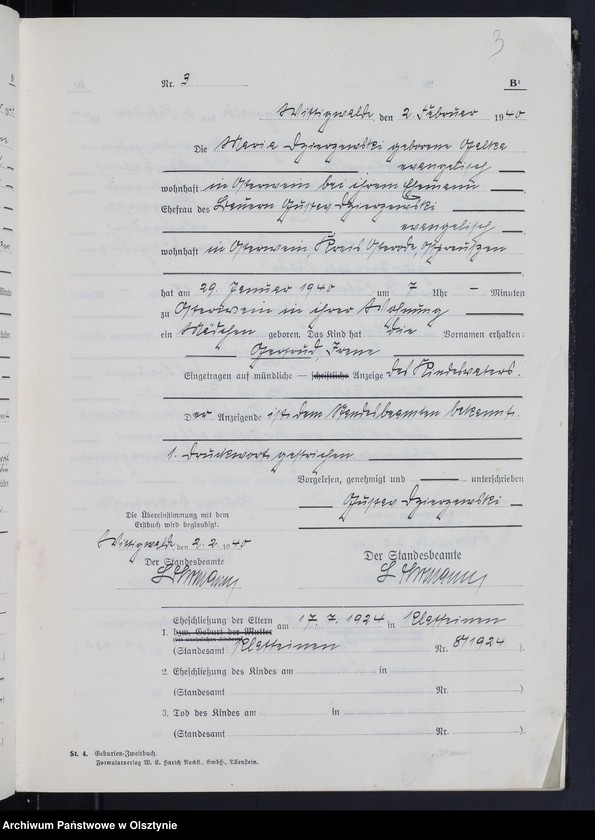 3
Nr. 3 B¹
Wittigwalde, den 2. Februar 1940
Die Maria Dzierzewski geborene
evangelisch
wohnhaft in Osterwein bei ihrem Ehemann,
Ehefrau des Bauern Gustav Dzierzewski
evangelisch
wohnhaft in Osterwein, Kreis Osterode, Ostpreußen
hat am 29. Januar 1940 um 7 Uhr — Minuten
zu Osterwein in ihrer Wohnung
ein Mädchen geboren. Das Kind hat die Vornamen erhalten:
Gertrud, Irene
Eingetragen auf mündliche — schriftliche Anzeige des Kindesvaters.
Der Anzeigende ist dem Standesbeamten bekannt.
1. Druckwort gestrichen
Vorgelesen, genehmigt und unterschrieben
Gustav Dzierzewski
Die Übereinstimmung mit dem
Erstbuch wird beglaubigt.
Wittigwalde, den 2. 2. 1940
Der Standesbeamte
Der Standesbeamte
Eheschließung der Eltern am 17. 7. 1924 in
1. bzw. Geburt der Mutter
(Standesamt Nr. 8/1924).
2. Eheschließung des Kindes am in
(Standesamt Nr. )
3. Tod des Kindes am in
(Standesamt Nr. )
St. 4. Geburten-Zweitbuch.
Formularverlag W. E. Harich Nachf., GmbH., Allenstein.
Archiwum Państwowe w Olsztynie